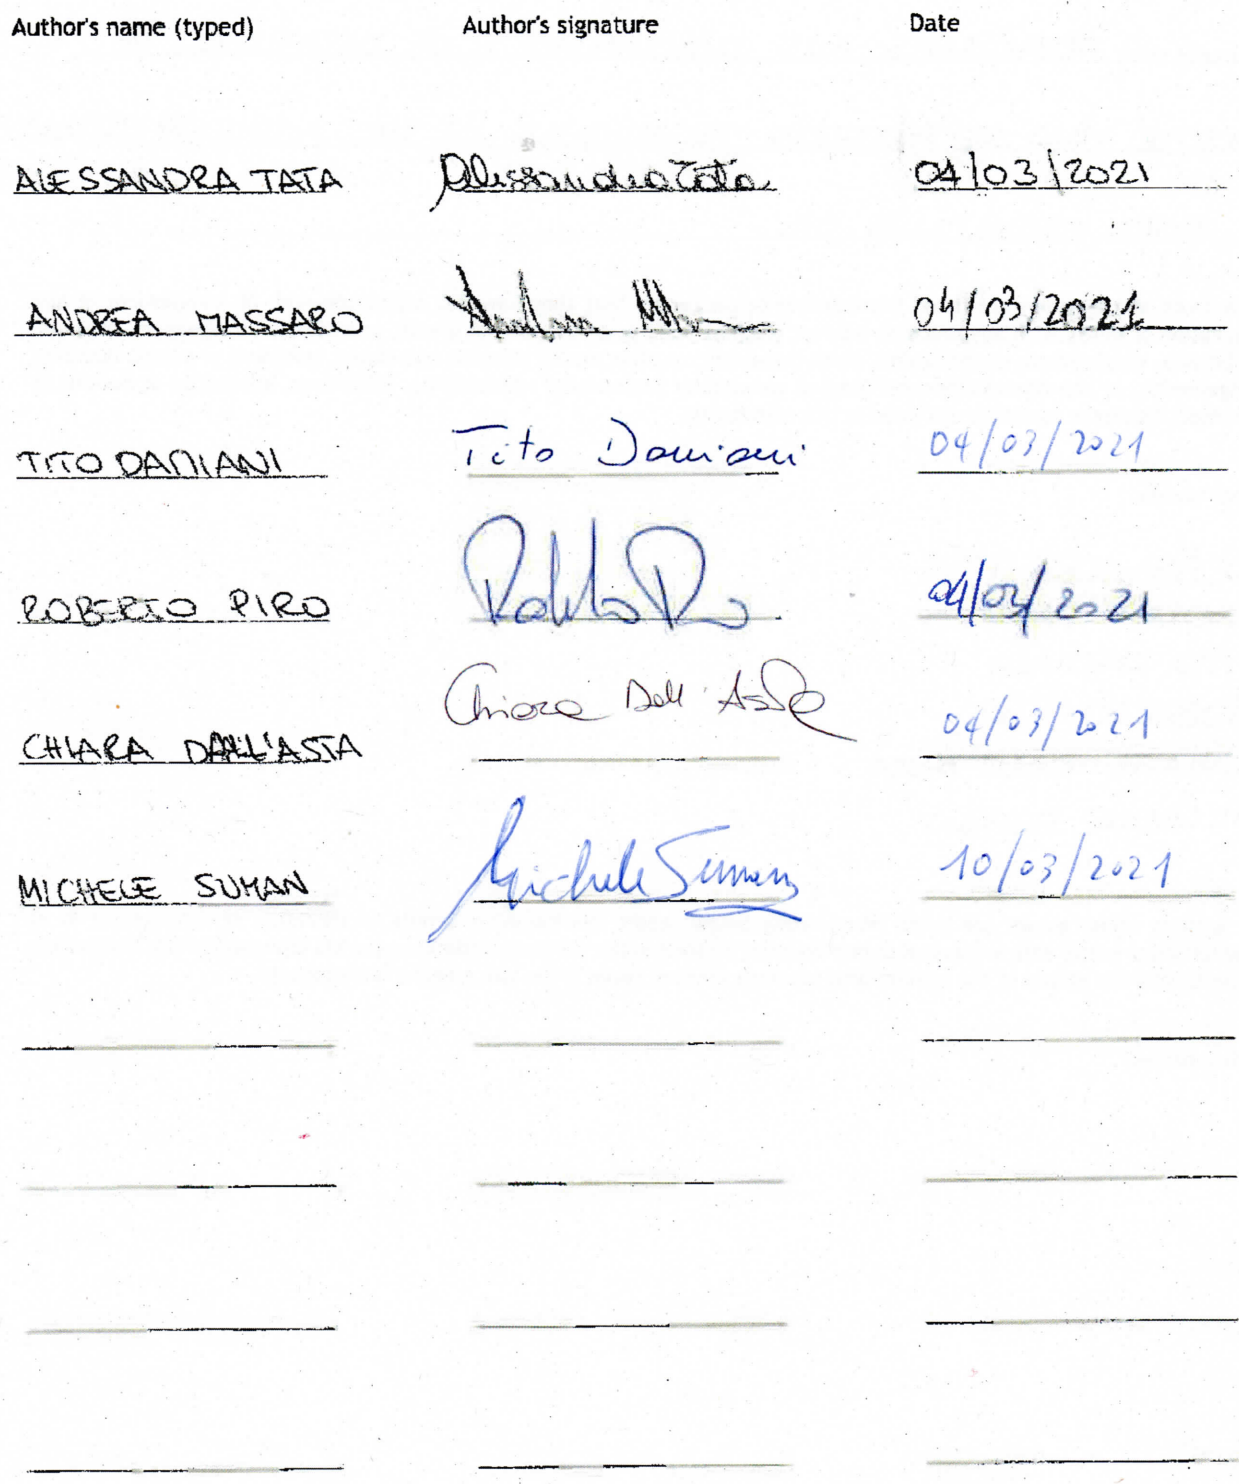 Author's name (typed) Author's signature Date
ALESSANDRA TATA Alessandra Tata 04/03/2021
ANDREA MASSARO 04/03/2021
TITO DAMIANI Tito Damiani 04/03/2021
ROBERTO PIRO Roberto Piro 04/03/2021
CHIARA DALL'ASTA Chiara Dall'Asta 04/03/2021
MICHELE SUMAN Michele Suman 10/03/2021